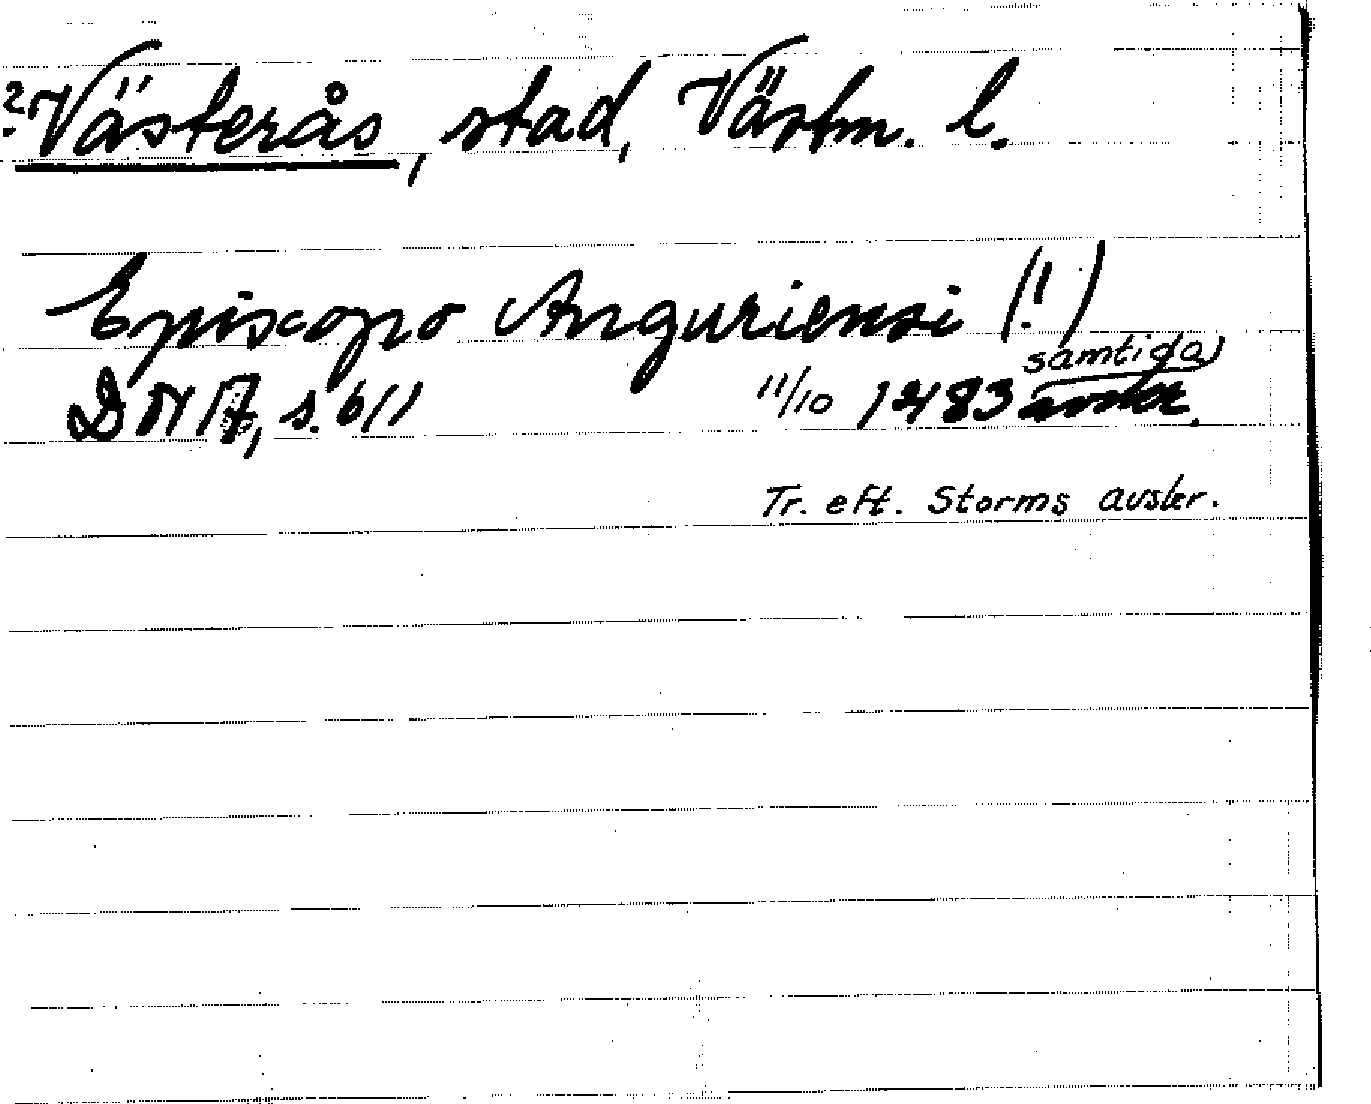 ? Västerås, stad, Västm. l.
Episcopo Anguriensi (!)
DN 17, s. 611 11/10 1483 samtida avskr.
Tr. eft. Storms avskr.